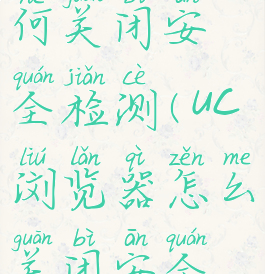 何关闭安
quán jiǎn cè
全检测(UC
liú lǎn qì zěn me
浏览器怎么
guān bì ān quán
关闭安全